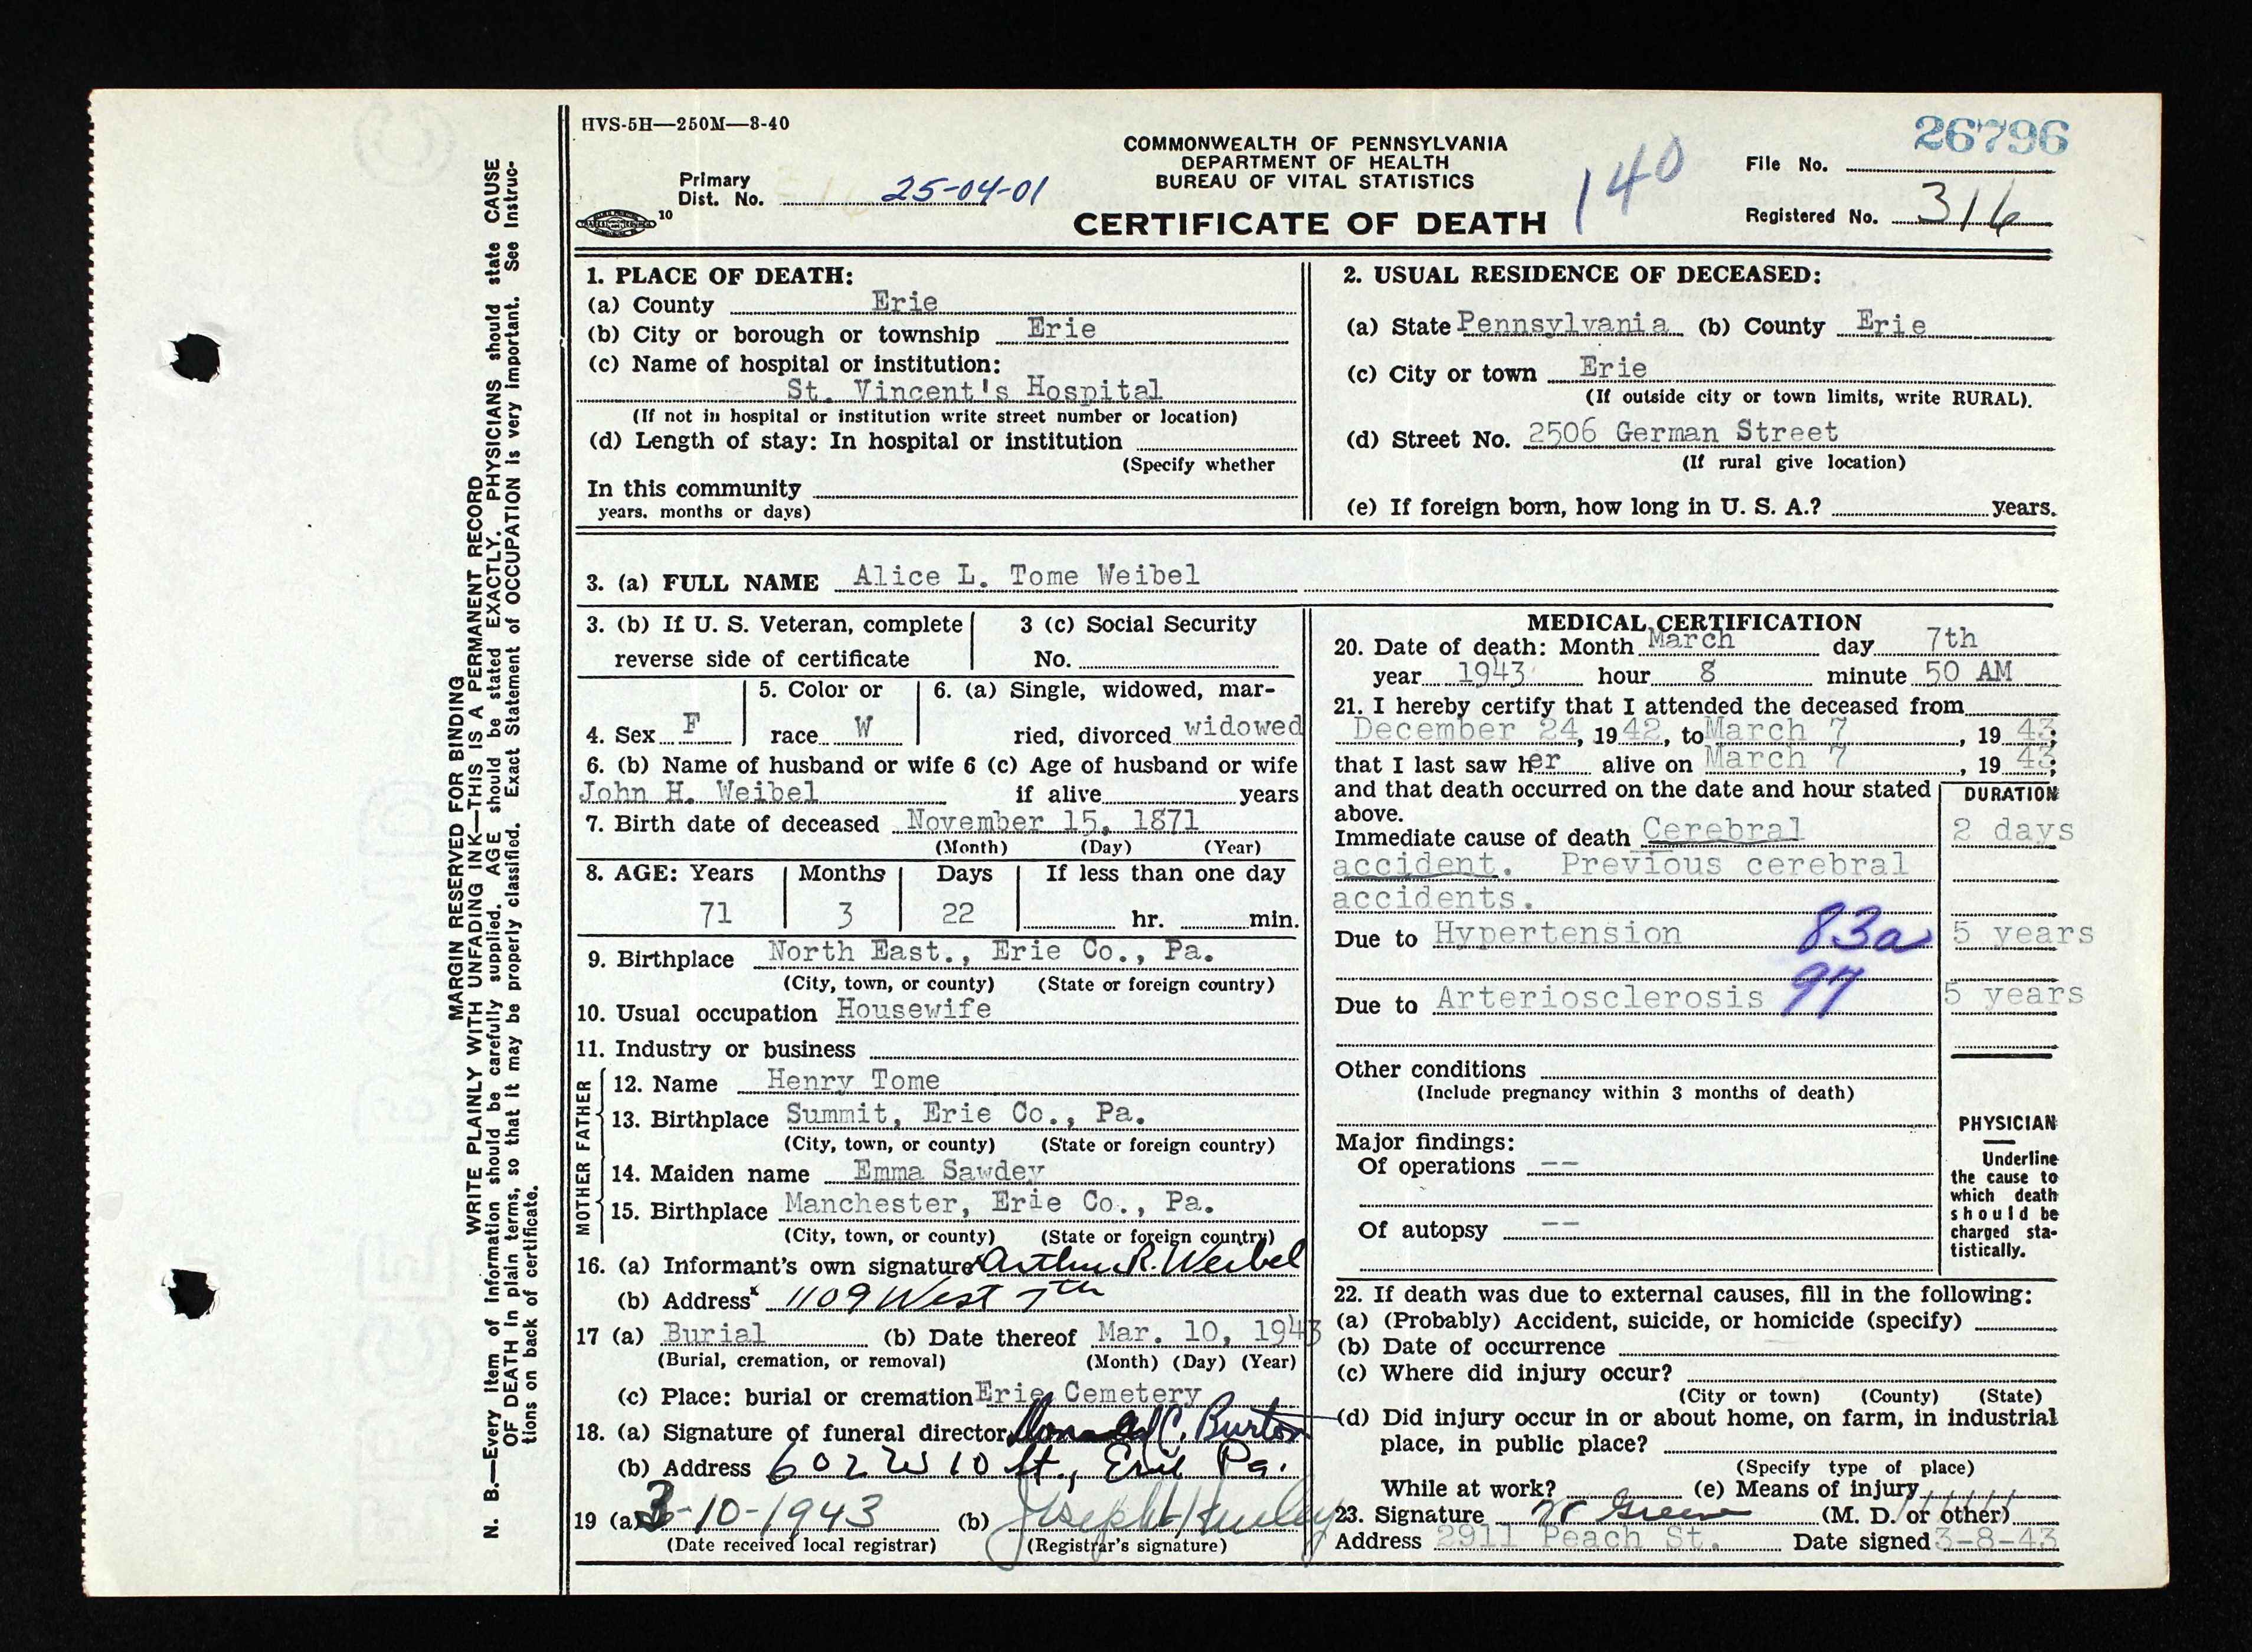 HVS-5H—250M—8-40
COMMONWEALTH OF PENNSYLVANIA
DEPARTMENT OF HEALTH
BUREAU OF VITAL STATISTICS
CERTIFICATE OF DEATH
Primary
Dist. No. 25-04-01
10
140
File No. 26796
Registered No. 316
MARGIN RESERVED FOR BINDING
WRITE PLAINLY WITH UNFADING INK—THIS IS A PERMANENT RECORD
N. B.—Every item of information should be carefully supplied. AGE should be stated EXACTLY. PHYSICIANS should state CAUSE
OF DEATH in plain terms, so that it may be properly classified. Exact Statement of OCCUPATION is very important. See Instruc-
tions on back of certificate.
1. PLACE OF DEATH:
(a) County Erie
(b) City or borough or township Erie
(c) Name of hospital or institution:
St. Vincent's Hospital
(If not in hospital or institution write street number or location)
(d) Length of stay: In hospital or institution
(Specify whether
In this community
years. months or days)
2. USUAL RESIDENCE OF DECEASED:
(a) State Pennsylvania (b) County Erie
(c) City or town Erie
(If outside city or town limits, write RURAL).
(d) Street No. 2506 German Street
(If rural give location)
(e) If foreign born, how long in U. S. A.? years.
3. (a) FULL NAME Alice L. Tome Weibel
3. (b) If U. S. Veteran, complete
reverse side of certificate
3 (c) Social Security
No.
4. Sex F
5. Color or
race W
6. (a) Single, widowed, mar-
ried, divorced widowed
6. (b) Name of husband or wife 6 (c) Age of husband or wife
John H. Weibel if alive years
7. Birth date of deceased November 15, 1871
(Month) (Day) (Year)
8. AGE: Years Months Days If less than one day
71 3 22 hr. min.
9. Birthplace North East., Erie Co., Pa.
(City, town, or county) (State or foreign country)
10. Usual occupation Housewife
11. Industry or business
FATHER
12. Name Henry Tome
13. Birthplace Summit, Erie Co., Pa.
(City, town, or county) (State or foreign country)
MOTHER
14. Maiden name Emma Sawdey
15. Birthplace Manchester, Erie Co., Pa.
(City, town, or county) (State or foreign country)
16. (a) Informant's own signature Arthur R. Weibel
(b) Address 1109 West 7th
17 (a) Burial (b) Date thereof Mar. 10, 1943
(Burial, cremation, or removal) (Month) (Day) (Year)
(c) Place: burial or cremation Erie Cemetery
18. (a) Signature of funeral director Burton
(b) Address 602 W 10 St., Erie Pa.
19 (a) 3-10-1943 (b) Joseph
(Date received local registrar) (Registrar's signature)
MEDICAL CERTIFICATION
20. Date of death: Month March day 7th
year 1943 hour 8 minute 50 AM
21. I hereby certify that I attended the deceased from
December 24, 1942, to March 7, 1943;
that I last saw her alive on March 7, 1943;
and that death occurred on the date and hour stated
above.
DURATION
Immediate cause of death Cerebral 2 days
accident. Previous cerebral
accidents.
Due to Hypertension 83a 5 years
97
Due to Arteriosclerosis 5 years
Other conditions
(Include pregnancy within 3 months of death)
Major findings:
Of operations --
Of autopsy --
PHYSICIAN
Underline
the cause to
which death
should be
charged sta-
tistically.
22. If death was due to external causes, fill in the following:
(a) (Probably) Accident, suicide, or homicide (specify)
(b) Date of occurrence
(c) Where did injury occur?
(City or town) (County) (State)
(d) Did injury occur in or about home, on farm, in industrial
place, in public place?
(Specify type of place)
While at work? (e) Means of injury
23. Signature Greene (M. D. or other)
Address 2911 Peach St. Date signed 3-8-43